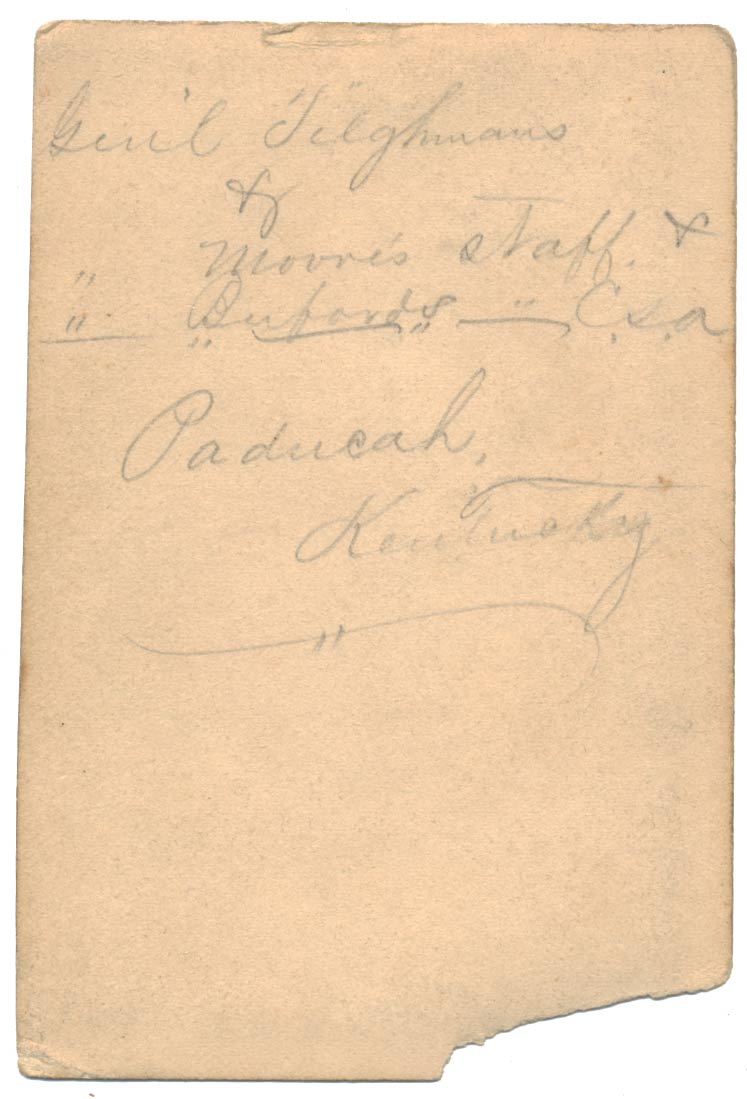 Gen'l Tilghmans
&
" Moore's staff. &
" Buford's " C.S.A
Paducah,
Kentucky